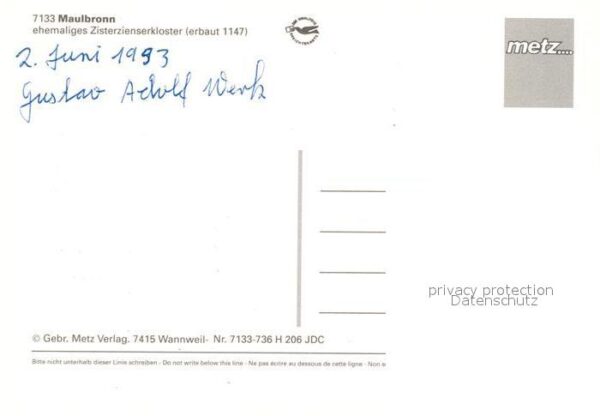 7133 Maulbronn
ehemaliges Zisterzienserkloster (erbaut 1147)
2. Juni 1993
Gustav Adolf Werk
metz....
privacy protection
Datenschutz
© Gebr. Metz Verlag. 7415 Wannweil- Nr. 7133-736 H 206 JDC
Bitte nicht unterhalb dieser Linie schreiben - Do not write below this line - Ne pas écrire au dessous de cette ligne - Non